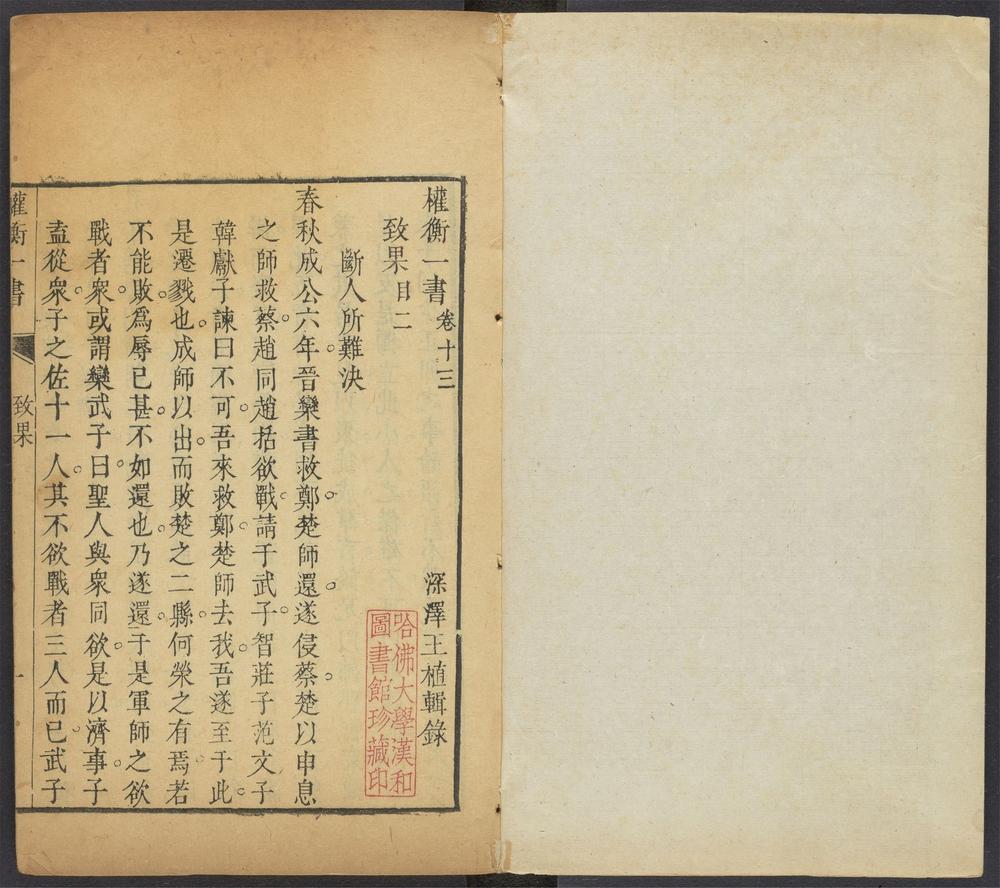 權衡一書卷十三 深澤王植輯錄
致果目二
斷人所難決
春秋成公六年。晉欒書救鄭。楚師還。遂侵蔡。楚以申息
之師救蔡。趙同趙括欲戰。請于武子。智莊子范文子
韓獻子諫曰不可。吾來救鄭。楚師去我。吾遂至于此。
是遷戮也。成師以出。而敗楚之二縣。何榮之有焉。若
不能敗。爲辱已甚。不如還也。乃遂還。于是軍師之欲
戰者衆。或謂欒武子曰。聖人與衆同欲。是以濟事。子
盍從衆。子之佐十一人。其不欲戰者三人而已。武子
權衡一書
致果
一
哈佛大學漢和
圖書館珍藏印